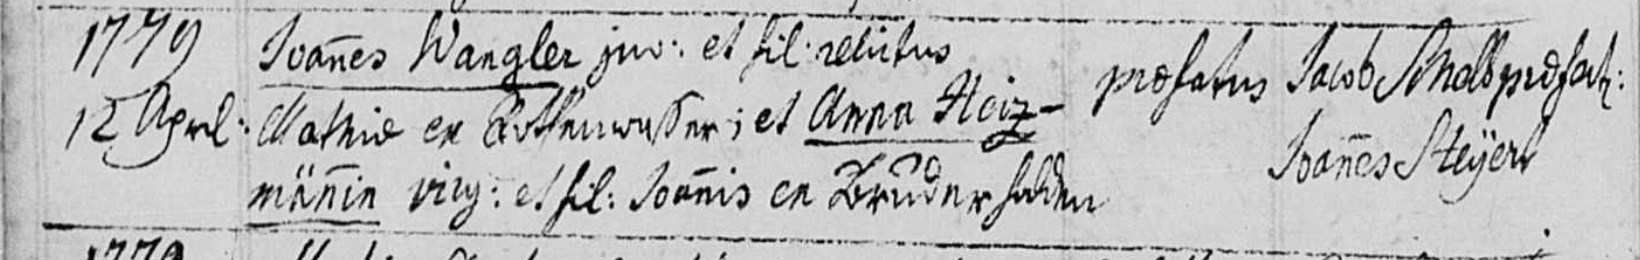 1779 Joan̄es Wangler juv: et fil: relictus
12 April: Mathiæ ex Rothenwasser; et Anna Heiz-
män̄in virg: et fil: Joan̄is ex Bruderhalden
præfatus Jacob
Joan̄es Steÿert
1779